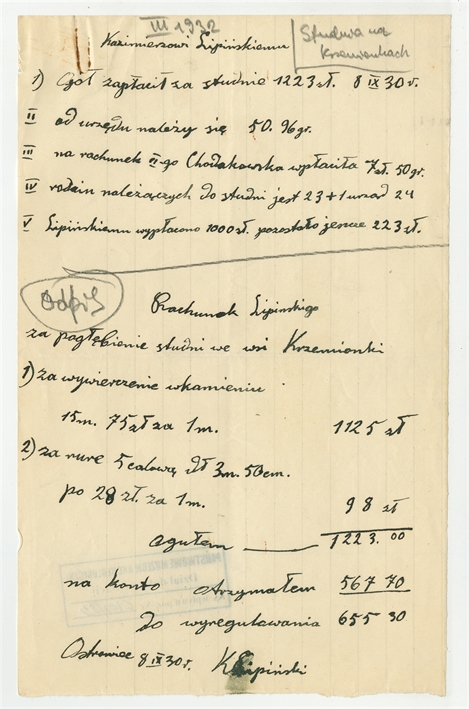 III 1932
Studnia na
Krzemionkach
Kazimierzowi Lipińskiemu
1) Goł zapłacił za studnie 1223 zł. 8 IX 30 r.
II od urzędu należy się 50.96 gr.
III na rachunek II-go Chodakowska wpłaciła 7 zł. 50 gr.
IV rodzin należączych do studni jest 23 + 1 urząd 24
V Lipińskiemu wypłacono 1000 zł. pozostało jeszcze 223 zł.
Odpis
Rachunek Lipinskigo
za pogłębienie studni we wsi Krzemionki
1) za wywierczenie wkamieniu
15 m. 75 zł za 1 m. 1125 zł
2) za rurę 5 calową dł 3 m. 50 cm.
po 28 zł. za 1 m. 98 zł
ogułem 1223.00
na konto otrzymałem 567 70
do wyregulowania 655 30
Ostrowiec 8 IX 30 r. K Lipiński